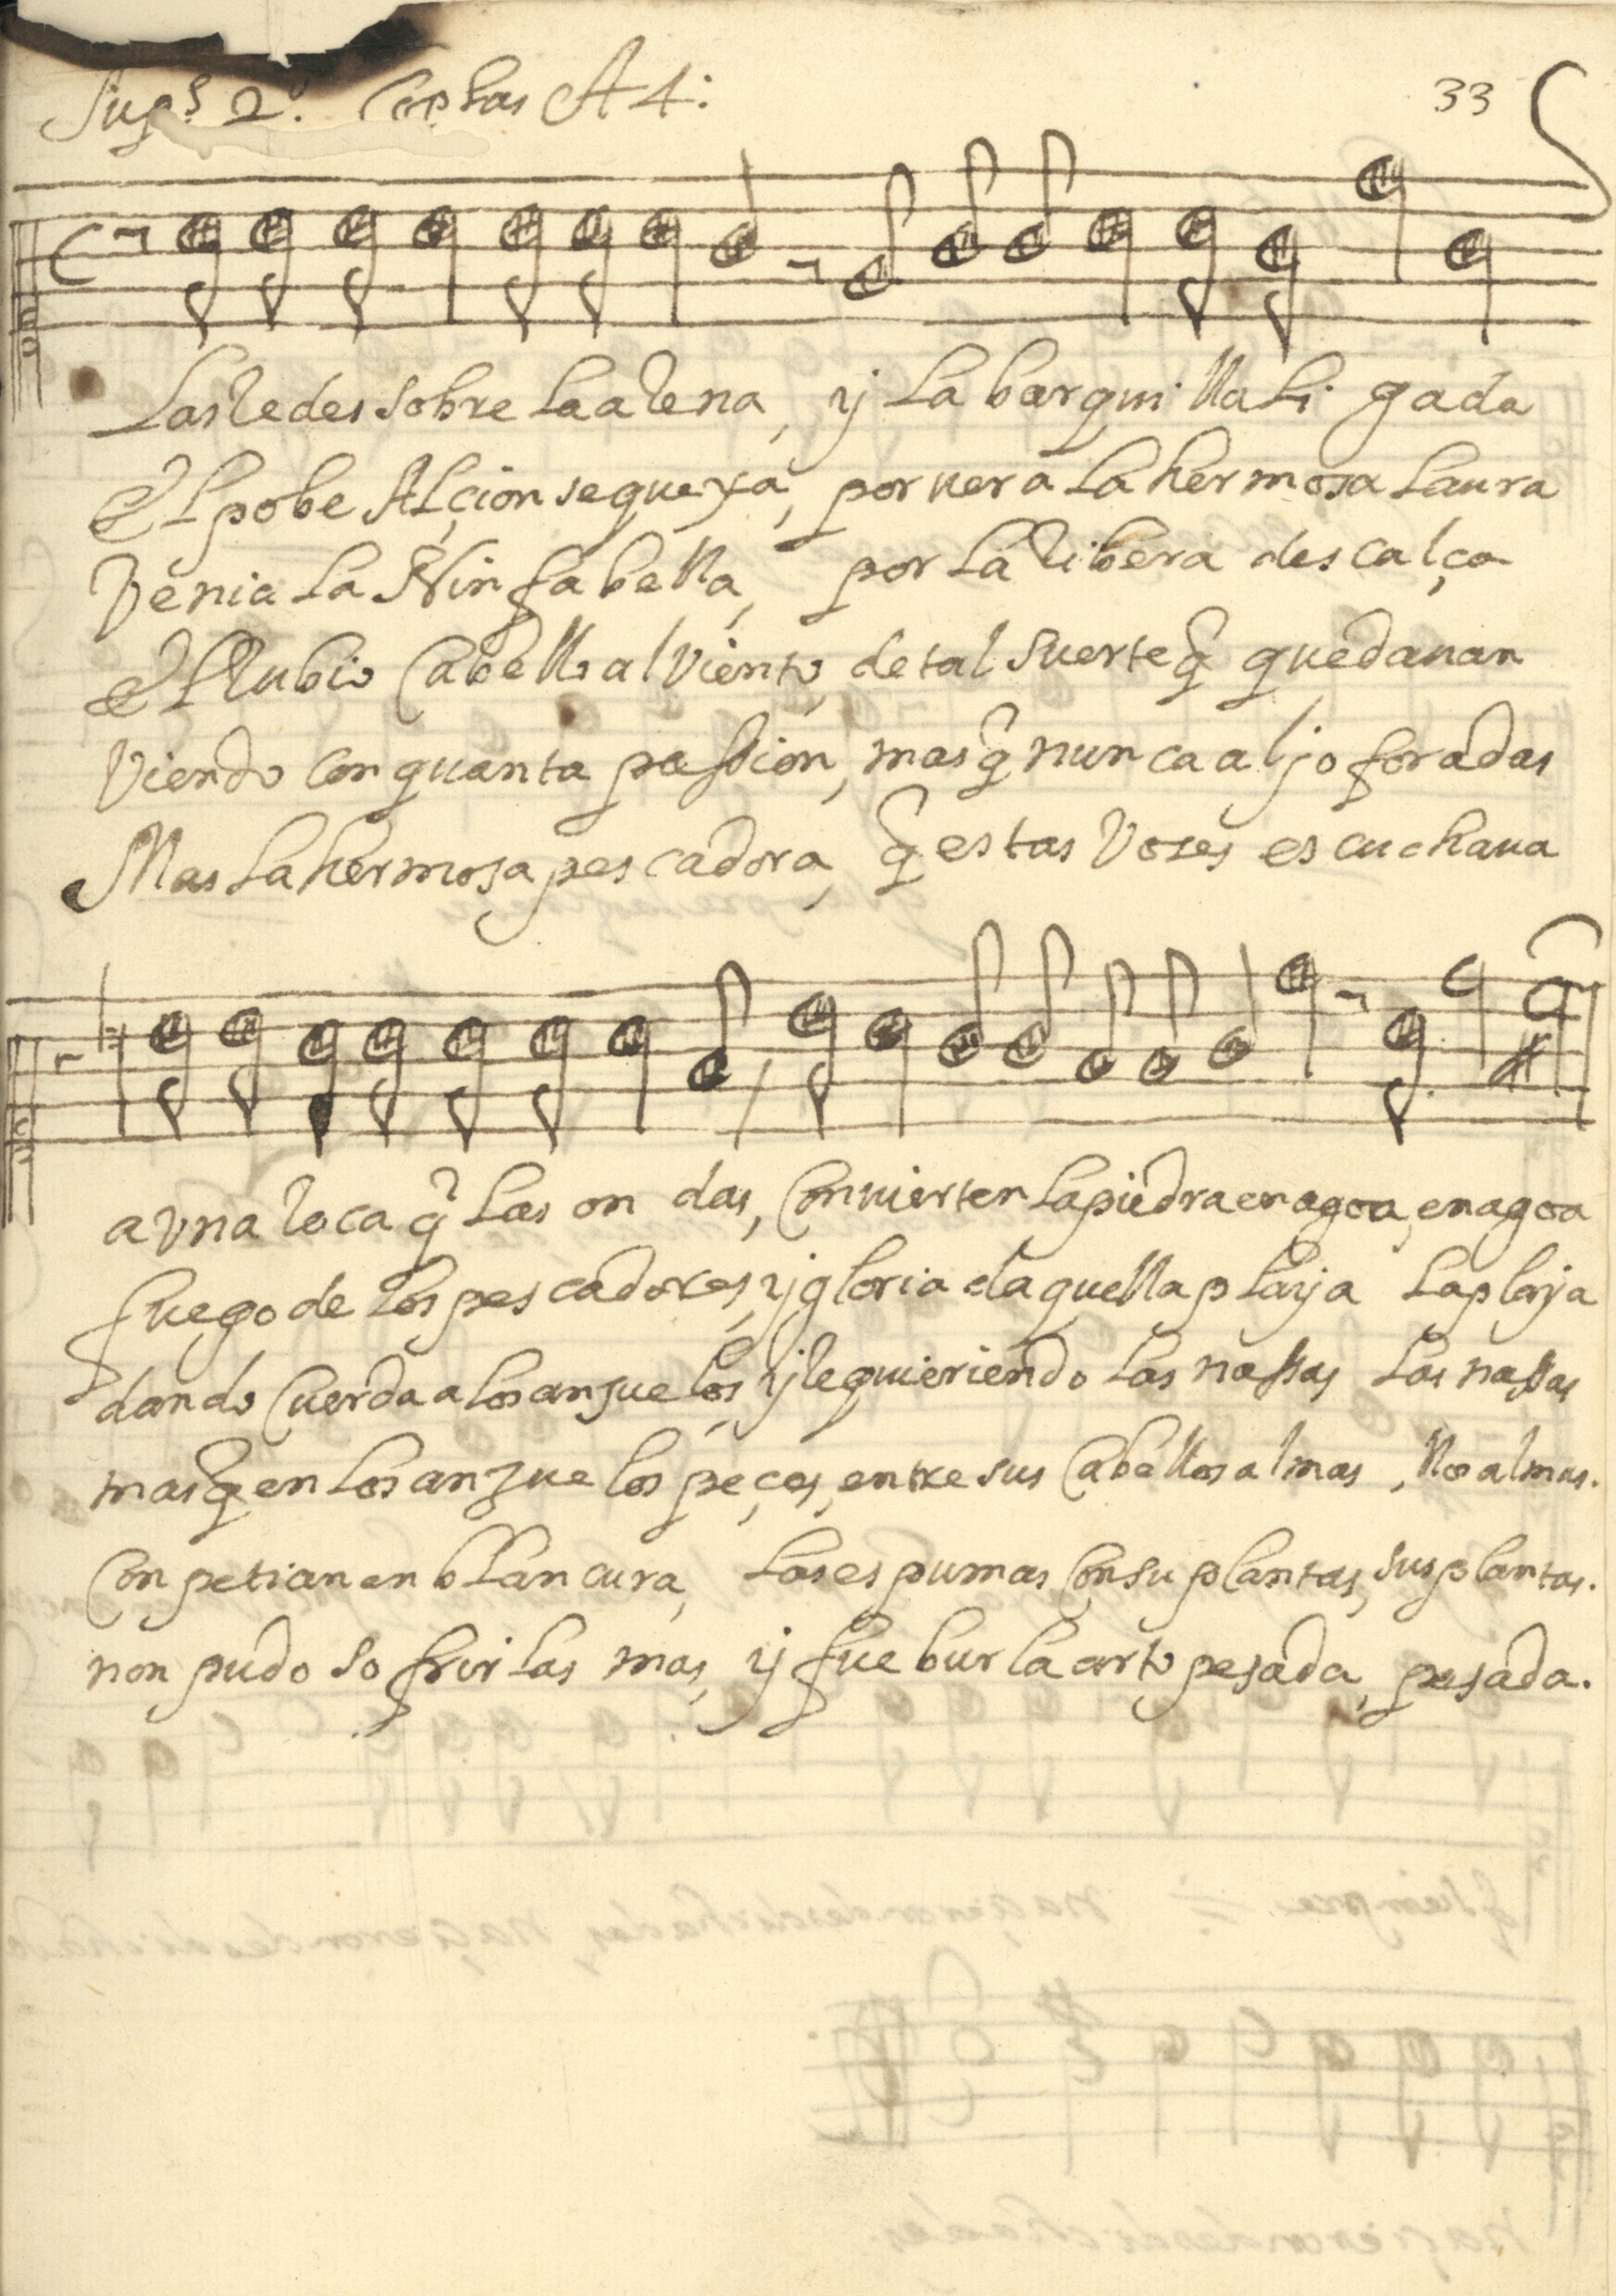 Sup.s 2.o Coplas A 4:
33
Las Redes sobre La aRena, y La barqui lla Li gada
El pobe Alçion se quexa, por uer a La hermosa Laura
Venia La Ninfa bella, por La Ribera descalça
El Rubio Cabello al Viento, de tal suerte q̃ quedauan
Viendo con quanta passion, mas q̃ nunca aljoforadas
Mas La hermosa pescadora, q̃ estas Vozes escuchaua
a Vna Roca q̃ Las on das, Conuierten La piedra en agoa, en agoa
fuego de Los pescadores, y gloria daquella playa La playa
dando Cuerda a Los anzuelos, y Requieriendo Las nassas Las nassas
mas q̃ en Los anzuelos peçes, entre sus Cabellos almas, llos almas.
Conpetian en blancura, Las espumas Con su plantas, sus plantas.
non pudo sofrir Las mas, y fue burla arto pesada, pesada.